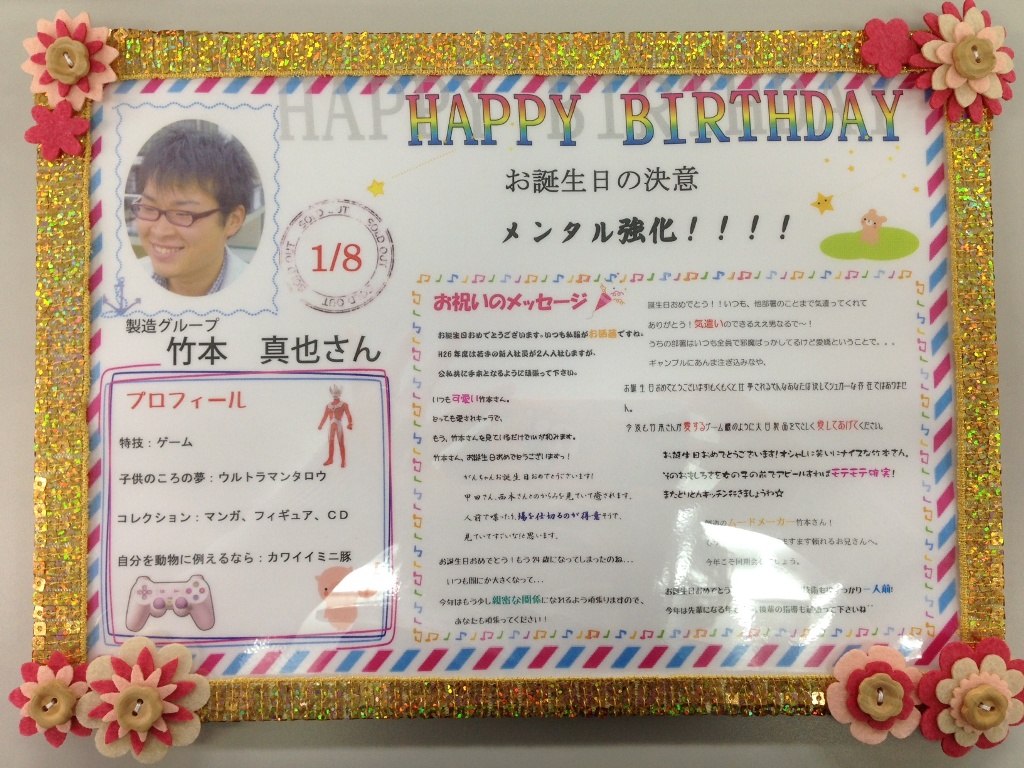 HAPPY BIRTHDAY
お誕生日の決意
メンタル強化！！！！
SOLD OUT
1/8
製造グループ
竹本 真也さん
プロフィール
特技：ゲーム
子供のころの夢：ウルトラマンタロウ
コレクション：マンガ、フィギュア、ＣＤ
自分を動物に例えるなら：カワイイミニ豚
お祝いのメッセージ
お誕生日おめでとうございます。いつも私語がお洒落ですね。
H26年度は若手の新入社員が2人入社しますが、
公私共に手本となるように頑張って下さい。
いつも可愛い竹本さん。
とっても愛されキャラで、
もう、竹本さんを見ているだけで心が和みます。
竹本さん、お誕生日おめでとうございますっ！
お誕生日おめでとうございます！
甲田さん、西本さんとのからみを見ていて癒されます。
人前で喋ったり、場を仕切るのが得意そうで、
見ていてすごいなと思います。
お誕生日おめでとう！もう24歳になってしまったのね...
いつも間にか大きくなって...
今年はもう少し親密な関係になれるよう頑張りますので、
あなたも頑張ってください！
誕生日おめでとう！！いつも、他部署のことまで気遣ってくれて
ありがとう！気遣いのできるええ男なるで〜！
うちの部署はいつも全員で邪魔ばっかしてるけど愛嬌ということで。。。
ギャンブルにあんま注ぎ込みなや。
お誕生日おめでとうございます!もくもくと仕事されてるんあなたは決してシュガーな存在ではありません。
今後も竹本さんが愛するゲーム機のように大日製罐をやさしく愛してあげてください。
お誕生日おめでとうございます!オシャレに笑いにナイスな竹本さん。
そのおもしろさを女の子の前でアピールすればモテモテ確実!
またとりとんキッチン行きましょうね☆
ムードメーカー竹本さん！
ますます頼れるお兄さんへ。
今年こそ同期会
お誕生日おめでとう
っかり一人前!
今年は先輩になる年
後輩の指導も頑張って下さいね